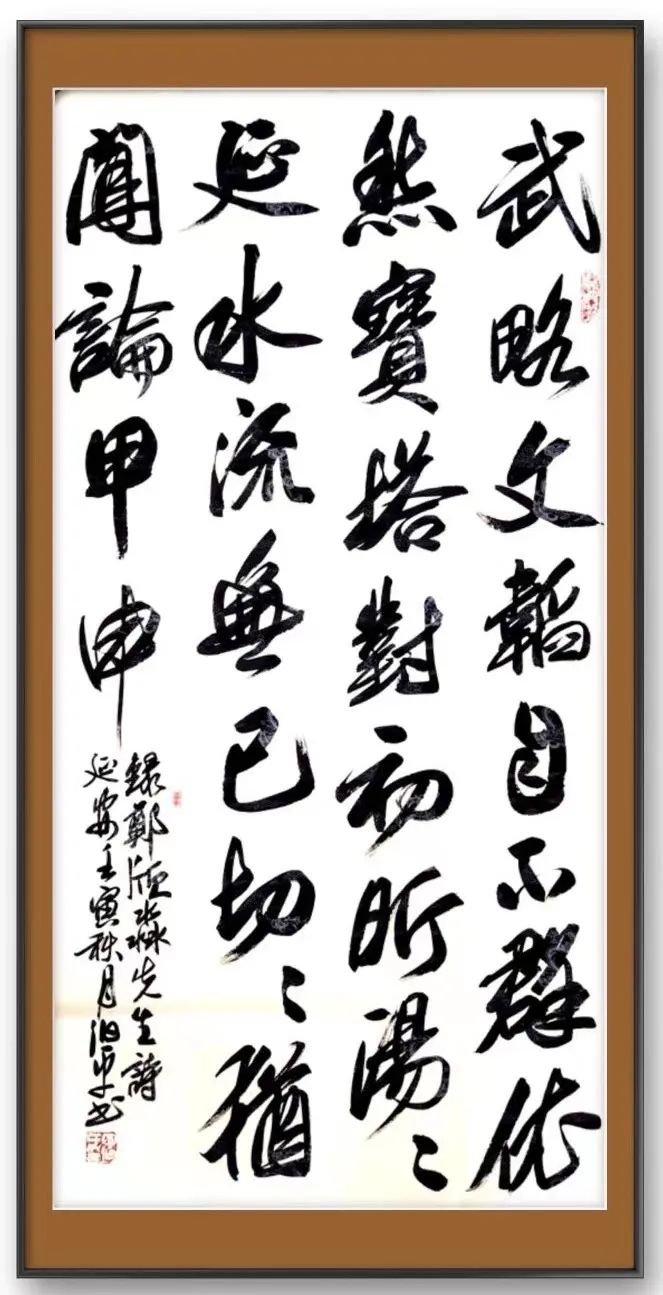 武略文韜自不群依
然寶塔對初昕湯〻
延水流無已切〻猶
聞論甲申
錄鄭欣淼先生詩
延安壬寅秋月泊平書